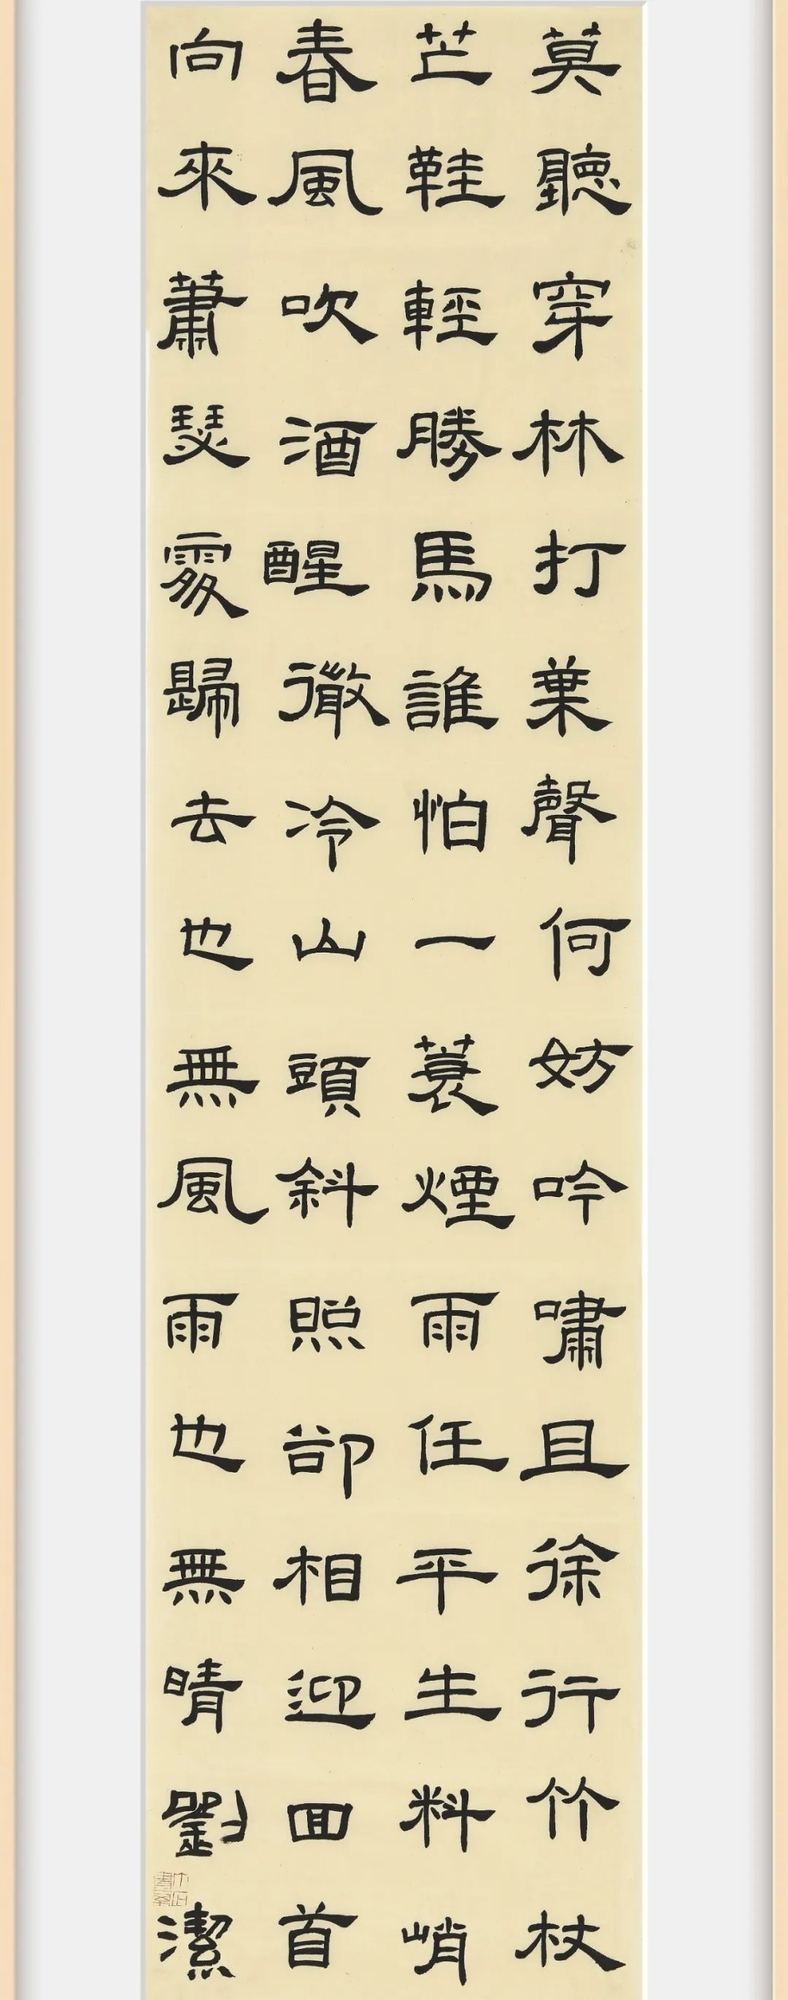 莫聽穿林打葉聲何妨吟嘯且徐行竹杖
芒鞋輕勝馬誰怕一蓑煙雨任平生料峭
春風吹酒醒徹冷山頭斜照卻相迎回首
向來蕭瑟處歸去也無風雨也無晴劉潔